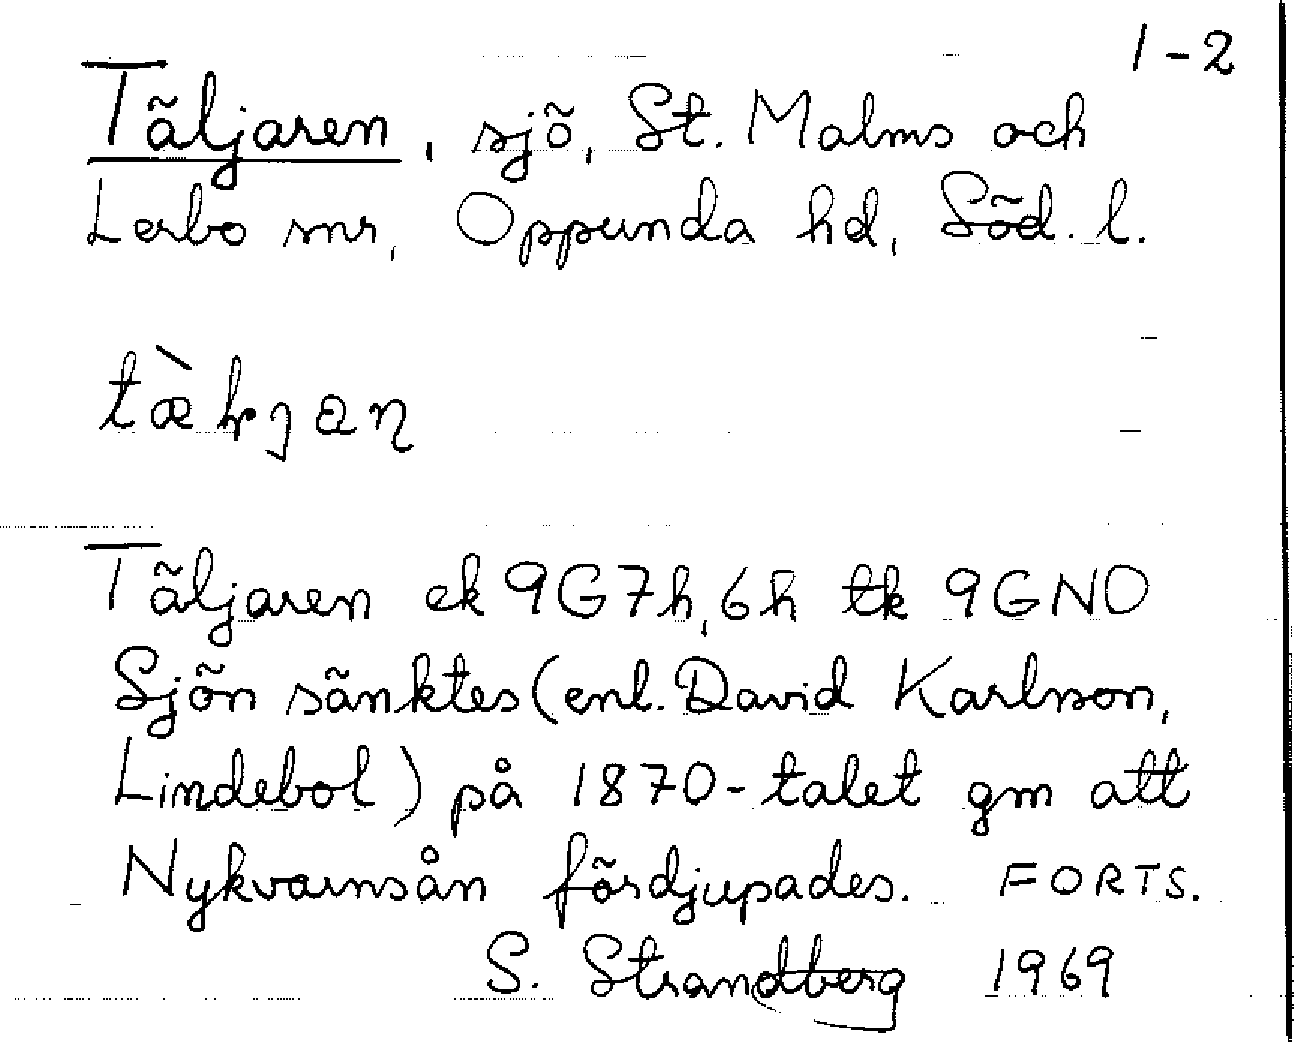 1-2
Täljaren, sjö, St. Malms och
Lerbo snr, Oppunda hd, Söd. l.
Täljaren ek 9G7h,6h tk 9GNO
Sjön sänktes (enl. David Karlsson,
Lindebol) på 1870-talet gm att
Nykvarnsån fördjupades. FORTS.
S. Strandberg 1969